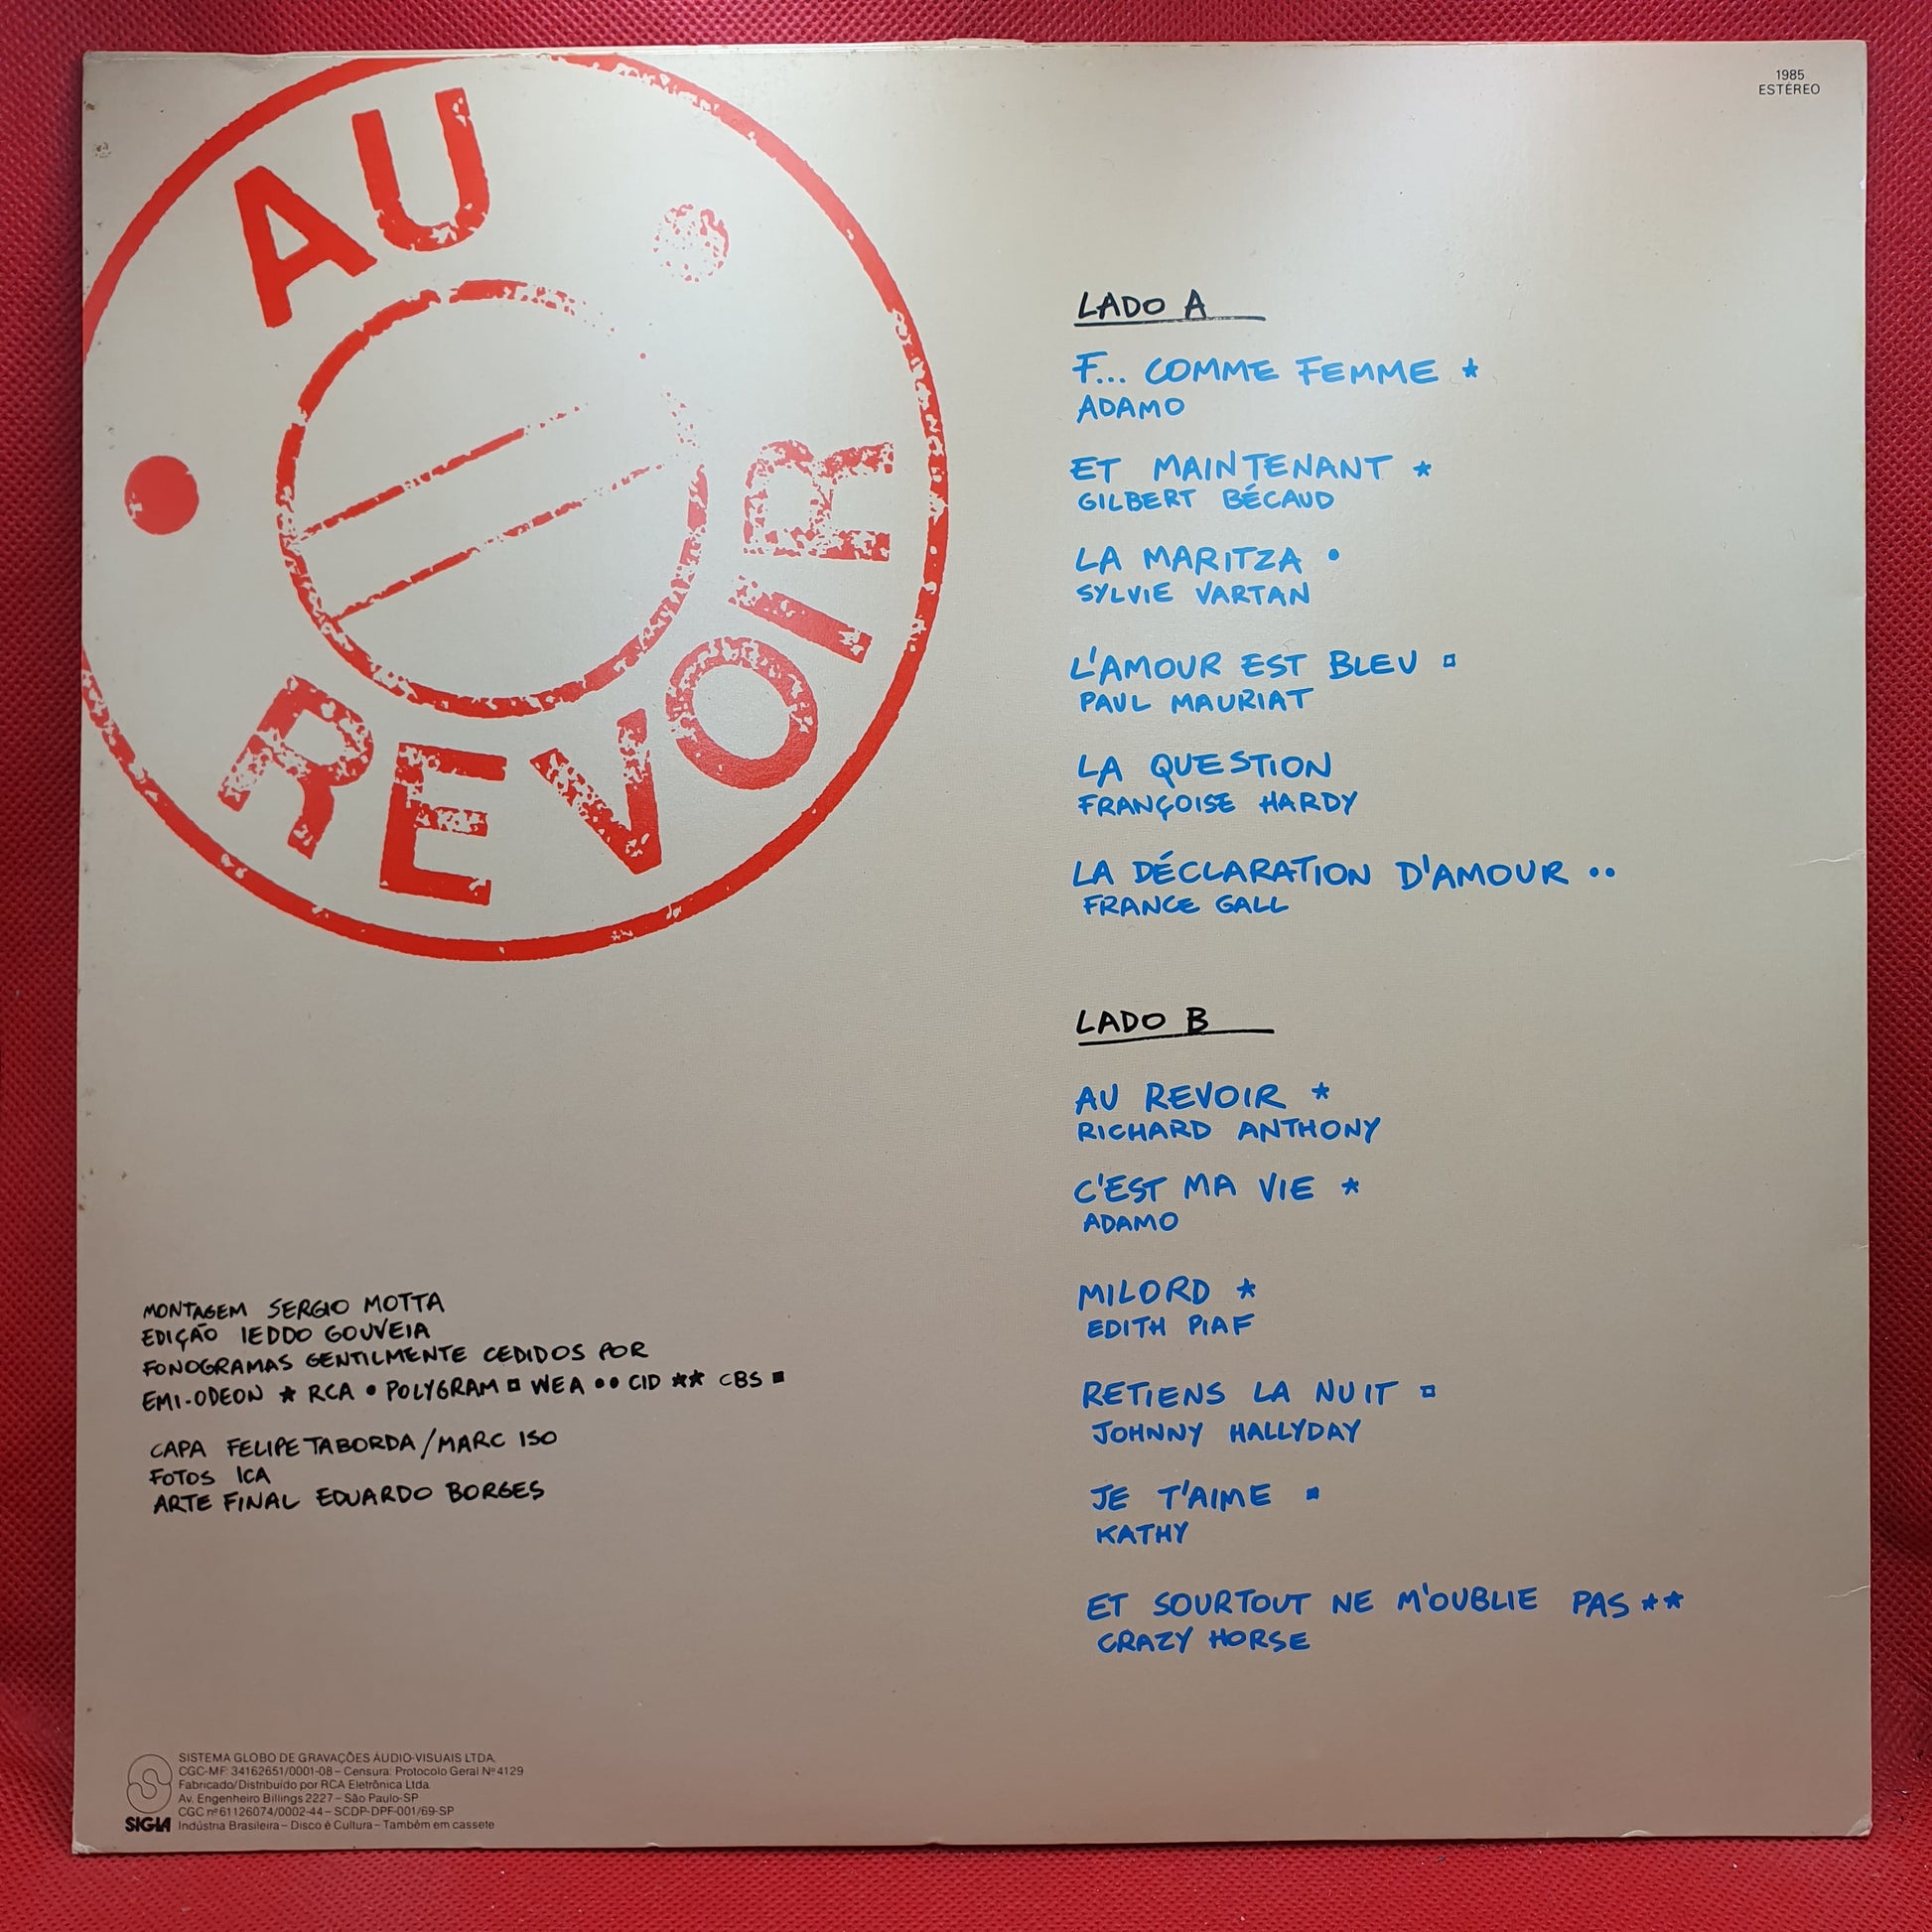 AU
REVOIR
1985
ESTÉREO
LADO A
F... COMME FEMME *
ADAMO
ET MAINTENANT *
GILBERT BÉCAUD
LA MARITZA •
SYLVIE VARTAN
L'AMOUR EST BLEU ▫
PAUL MAURIAT
LA QUESTION
FRANÇOISE HARDY
LA DÉCLARATION D'AMOUR ••
FRANCE GALL
LADO B
AU REVOIR *
RICHARD ANTHONY
C'EST MA VIE *
ADAMO
MILORD *
EDITH PIAF
RETIENS LA NUIT ▫
JOHNNY HALLYDAY
JE T'AIME ▪
KATHY
ET SOURTOUT NE M'OUBLIE PAS **
CRAZY HORSE
MONTAGEM SERGIO MOTTA
EDIÇÃO IEDDO GOUVEIA
FONOGRAMAS GENTILMENTE CEDIDOS POR
EMI-ODEON * RCA • POLYGRAM ▫ WEA •• CID ** CBS ▪
CAPA FELIPE TABORDA/MARC ISO
FOTOS ICA
ARTE FINAL EDUARDO BORGES
SISTEMA GLOBO DE GRAVAÇÕES ÁUDIO-VISUAIS LTDA.
CGC-MF: 34162651/0001-08 – Censura: Protocolo Geral Nº 4129
Fabricado/Distribuído por RCA Eletrônica Ltda.
Av. Engenheiro Billings 2227 – São Paulo-SP
CGC nº 61126074/0002-44 – SCDP-DPF-001/69-SP
SIGLA Indústria Brasileira – Disco é Cultura – Também em cassete